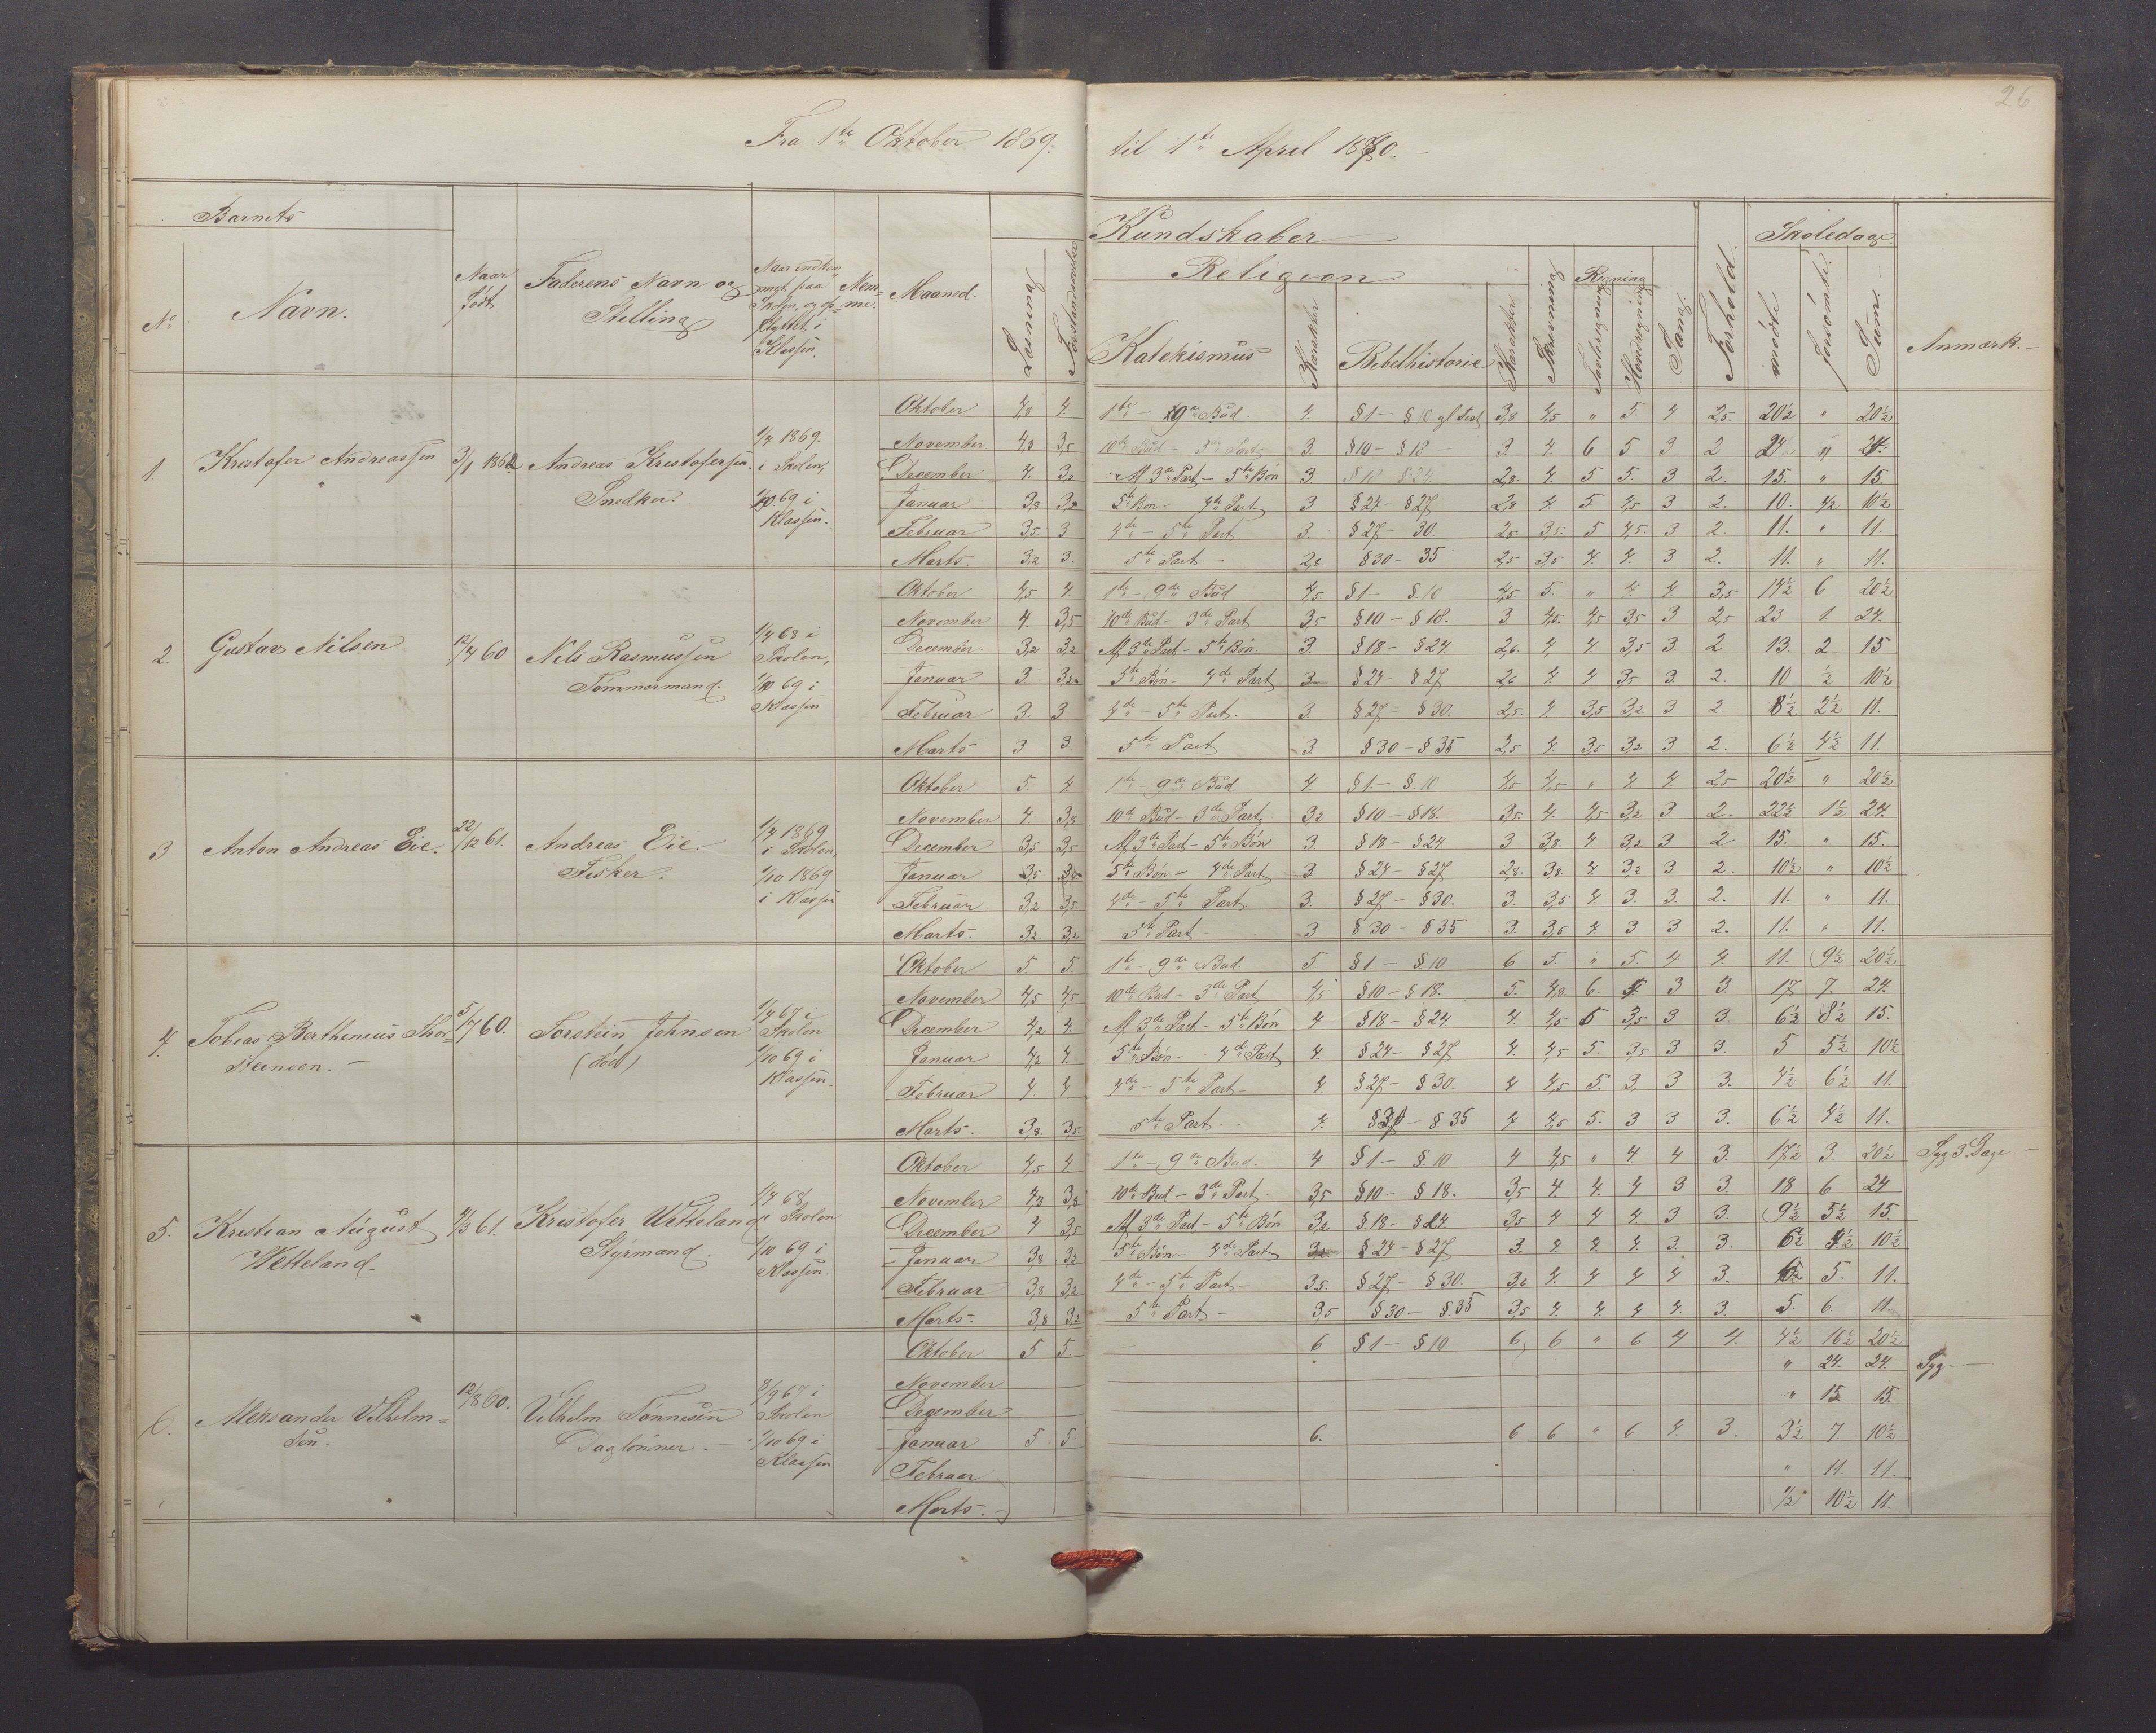 26
Fra 1ste Oktober 1869. til 1ste April 1870.
Barnets
No
Navn.
Naar født
Faderens Navn og Stilling
Naar indkommet paa Skolen, og opflyttet i Klassen.
Nemme.
Maaned.
Læsning
Forstandsøvelse
Kundskaber
Religion
Katekismus
Karakter
Bibelhistorie
Karakter
Skrivning
Regning
Tavleregning
Hovedregning
Sang.
Forhold.
Skoledage.
mødt
forsømte.
Sum.
Anmærk.
1. Kristofer Andreassen 3/1 1860 Andreas Kristofersen Snedker. 1/4 1869. i Skolen, 1/10 69 i Klassen.
Oktober 4,8 4. 1ste - 9de Bud. 4. §1 - §10 gl Test 3,8 4,5 " 5. 4 2,5. 20½ " 20½
November. 4,3 3,5 10de Bud - 3de Part 3. §10 - §18 3. 4. 6 5 3 2 24 " 24.
December 4. 3,2 M 3de Part - 5te Bøn 3. §18 - §24 2,8. 4. 5 5. 3 2. 15. " 15.
Januar 3,8 3,2 5te Bøn - 4de Part 3 §24 - §27 2,8 4. 5 4,5 3 2. 10. ½ 10½
Februar 3,5. 3 4de - 5te Part 3. §27 - 30. 2,5 3,5. 5 4,5. 3 2. 11. " 11.
Marts. 3,2 3. 5te Part. 2,8. §30 - 35 2,5 3,5 4. 4. 3 2. 11. " 11.
2. Gustav Nilsen 12/4 60 Nils Rasmussen Tømmermand. 1/4 68 i Skolen, 1/10 69 i Klassen
Oktober 4,5 4. 1ste - 9de Bud 4,5. §1 - §.10 4,5. 5. " 4. 4 3,5 14½ 6 20½
November 4 3,5 10de Bud - 3de Part 3,5 §10 - §18. 3 4,5. 4,5 3,5 3 2,5 23 1. 24.
December. 3,2 3,2 M. 3de Part - 5te Bøn. 3. §18 - §24 2,6 4 4. 3,5 3. 2 13 2 15
Januar 3. 3,2 5te Bøn - 4de Part 3 §24 - §27 2,6 4. 4 3,5 3. 2. 10 ½ 10½
Februar 3. 3 4de - 5te Part. 3. §27 - §30. 2,5. 4. 3,5 3,2. 3 2. 8½ 2½ 11.
Marts 3 3. 5te Part 3. §30 - §35 2,5 4. 3,5 3,2 3 2. 6½ 4½ 11.
3 Anton Andreas Eie. 22/12 61. Andreas Eie. Fisker. 1/4 1869 i Skolen, 1/10 1869 i Klassen
Oktober 5. 4 1ste - 9de Bud 4. §1. - §.10 4,5 4,5 " 4 4. 2,5 20½ " 20½
November 4. 3,8 10de Bud - 3de Part 3,2 §10 - §18. 3,5. 4. 4,5 3,2 3. 2. 22½ 1½ 24.
December 3,5 3,5 M. 3de Part - 5te Bøn 3. §18 - §24. 3. 3,8. 4 3,2 3 2 15. " 15.
Januar 3,5 3,5 5te Bøn - 4de Part 3 §24 - §27 2,8. 3,8. 4. 3,2 3 2. 10½ " 10½
Februar 3,2 3,5 4de - 5te Part 3. §27 - §30. 3. 3,5 4 3. 3. 2. 11. " 11.
Marts. 3,2. 3,2 5te Part - 3 §30 - §35 3. 3,5 4. 3 3 2. 11. " 11.
4. Tobias Berthinius Thorsteinsen. 5/7 60. Torstein Johnsen (død) 1/4 67 i Skolen 1/10 69 i Klassen.
Oktober 5. 5. 1ste - 9de Bud. 5. §1. - §.10 6 5. " 5. 4 4. 11. 9½ 20½
November 4,5 4,5 10de Bud - 3de Part 4,5 §10 - §18. 5. 4,8. 6. 5 3 3. 17. 7. 24.
December 4,2 4. M. 3de Part - 5te Bøn 4 §18 - §24. 4. 4,5 5 3,5 3 3. 6½ 8½ 15.
Januar 4,2 4. 5te Bøn - 4de Part 4. §24 - §27 4. 4,5 5. 3,5 3 3. 5 5½ 10½
Februar 4. 4 4de - 5te Part - 4. §27 - §30. 4 4,5 5. 3. 3 3. 4½ 6½ 11.
Marts. 3,8. 3,5. 5te Part 4. §30 - §.35 4. 4,5 5. 3 3 3. 6½ 4½ 11.
5. Kristian August Wetteland. 61. Kristofer Wetteland Styrmand. 1/4 68, i Skolen 1/10 69 i Klassen.
Oktober 4,5 4. 1ste - 9de Bud. 4 §1 - §.10 4 4,5 " 4. 4 3 17½ 3. 20½ Syg 3 Dage.
November 4,3 3,8 10de Bud - 3de Part. 3,5 §10 - §18. 3,5 4. 4. 4 3 3. 18 6 24
December 4 3,5 M 3de Part - 5te Bøn 3,2 §18 - §24. 3,5 4 4 4. 3 3. 9½ 5½ 15.
Januar 3,8 3,2 5te Bøn - 4de Part 3,2 §24 - §27 3. 4. 4. 4. 3. 3. 6½ 4½ 10½
Februar 3,8 3,2 4de - 5te Part - 3,5. §27 - §30. 3,6 4. 4 4 4 3. 5. 11.
Marts. 3,8 3,2 5te Part - 3,5 §30 - §.35 3,5 4. 4 4 4. 3. 5. 6. 11.
6. Aleksander Vilhelmsen. 12/8 60. Vilhelm Tønnesen Daglønner. 8/9 67 i Skolen 1/10 69 i Klassen
Oktober 5 5. 6 §1 - §10 6, 6 " 6 4 4. 4½ 16½ 20½
November " 24. 24. Syg.
December " 15. 15.
Januar 5 5 6. 6 6 " 6 4. 3. 3½ 7. 10½
Februar " 11. 11.
Marts. ½ 10½ 11.